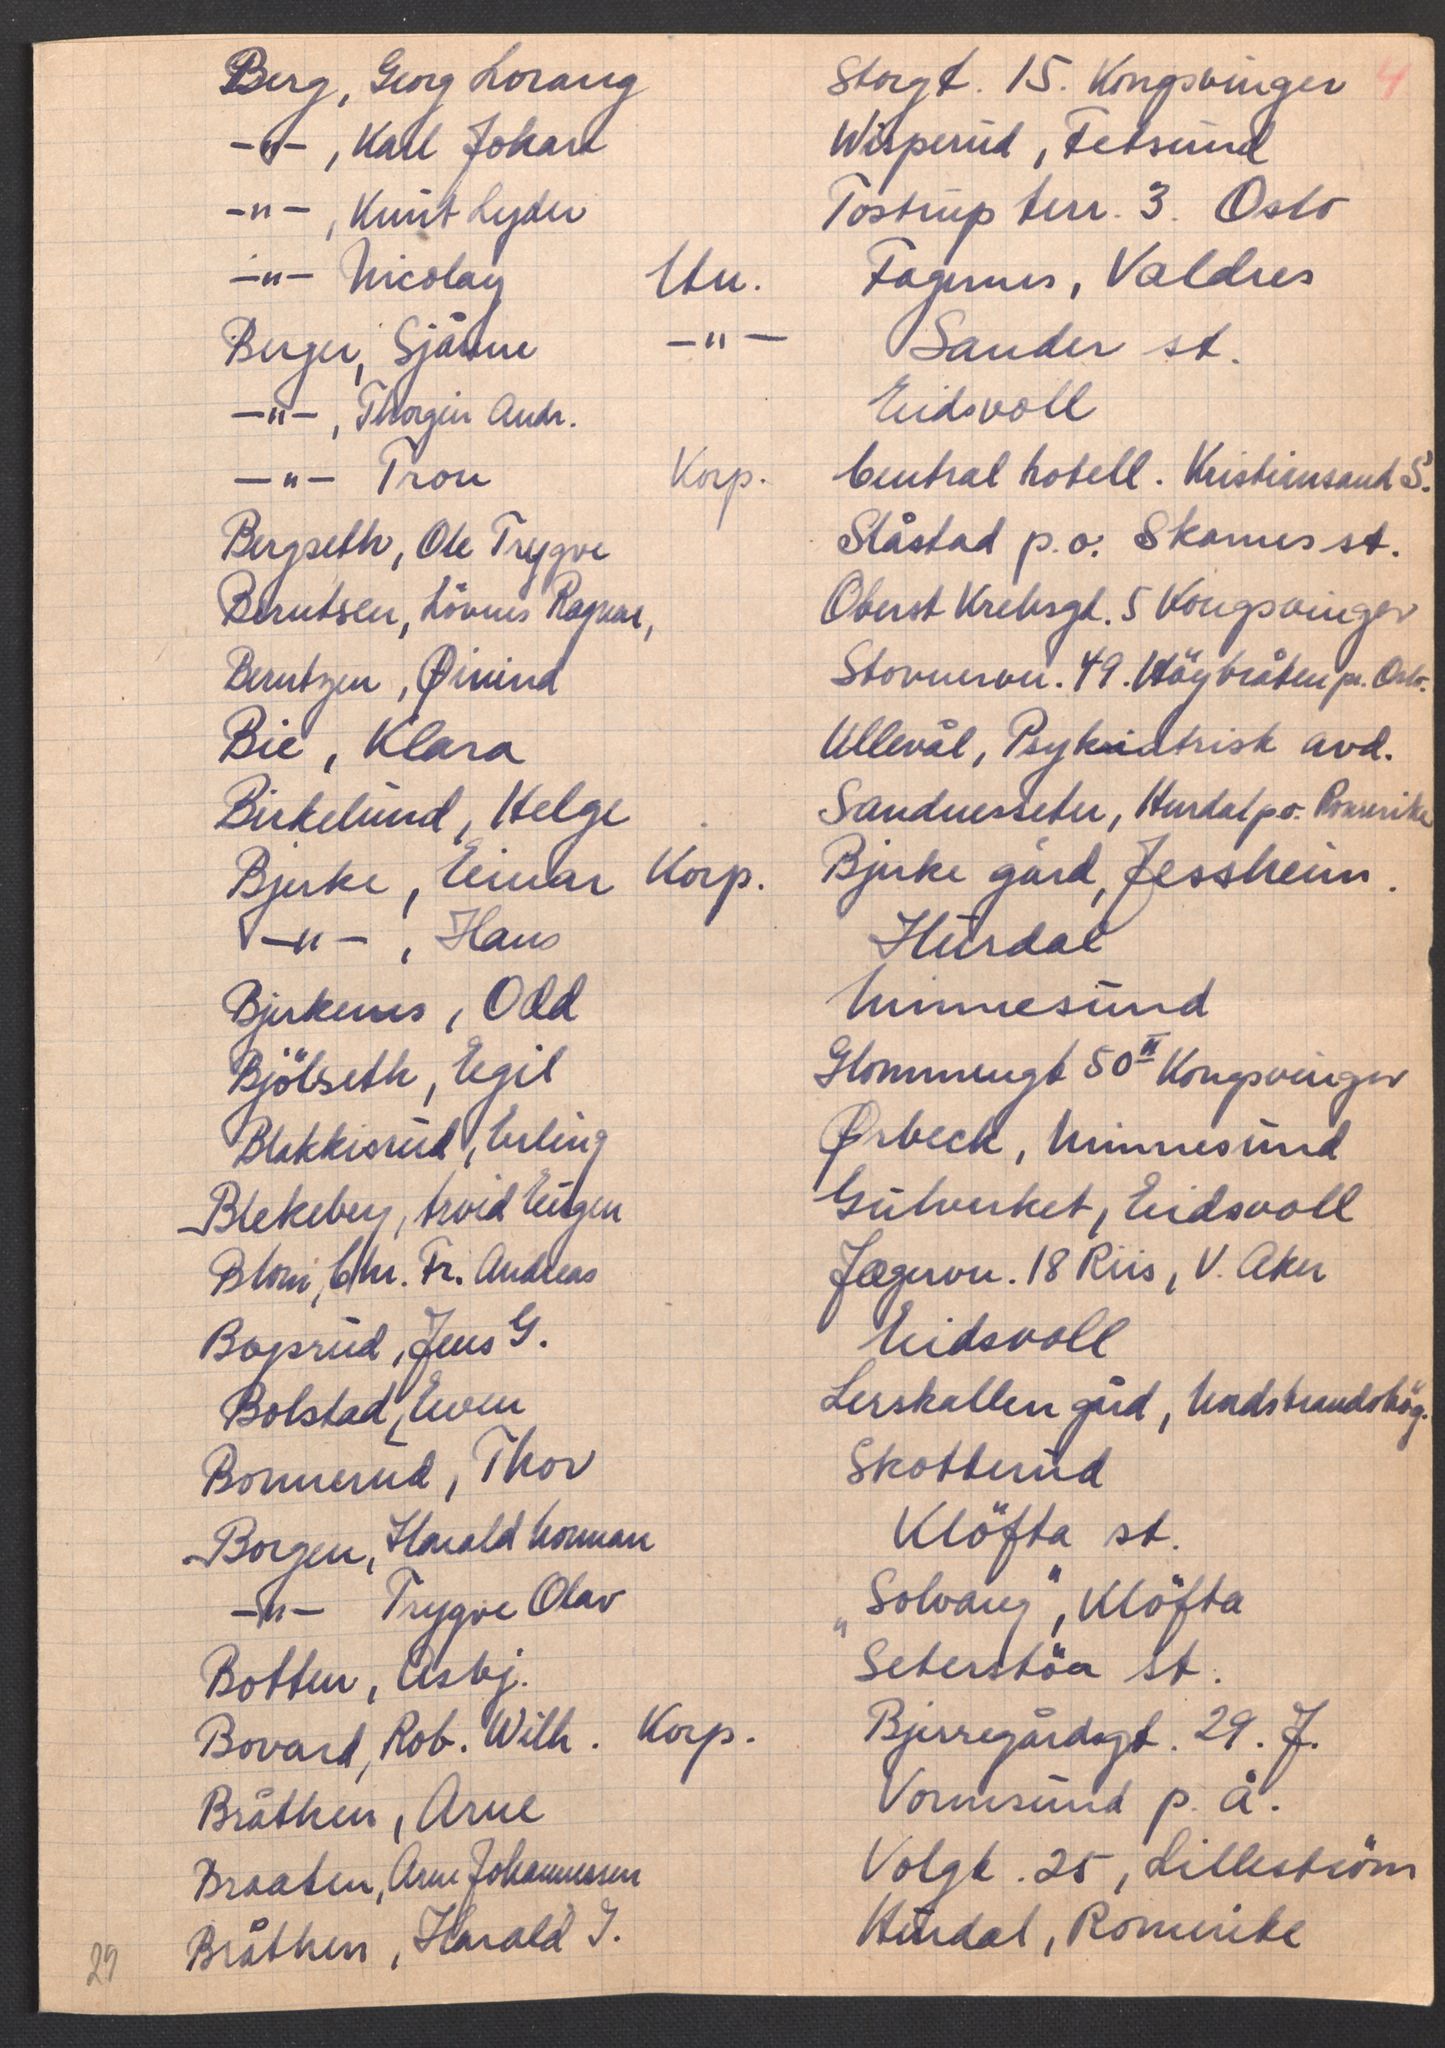 Berg, Georg Lorang Storgt. 15. Kongsvinger 4
-"-, Karl Johan Wisperud, Fetsund
-"-, Knut Lyder Tostrup terr. 3. Oslo
-"- Nicolay Fagernes, Valdres
Berger, -"- Sander st.
-"-, Andr. Eidsvoll
-"- Tron Korp. Central hotell. Kristiansand S.
Bergseth, Ole Trygve Slåstad p.o. Skarnes st.
Berntsen, Ragnar, Oberst Krebsgt. 5 Kongsvinger
Berntzen, Øivind Stovnervn. 49. Höybråten pr. Oslo.
Bie, Klara Ullevål, Psykiatrisk avd.
Birkelund, Helge Hurdal p.o. Romerike
Bjerke, Einar Korp. Bjerke gård, Jessheim.
-"-, Hans Hurdal
Bjerkenes, Odd Minnesund
Bjölseth, Egil Glommengt 50 II Kongsvinger
Blakkisrud, Erling Ørbeck, Minnesund
Blekeberg, Arvid Eugen Gulverket, Eidsvoll
Blom, Chr. Fr. Andreas Jægervn. 18 Riis, V. Aker
Bogsrud, Jens G. Eidsvoll
Bolstad, Even Lerskallen gård, Nordstrandshög.
Bonnerud, Thor Skotterud
Borgen, Harald Norman Klöfta st.
-"- Trygve Olav "Solvang", Klöfta
Botten, Asbj. Seterstöa st.
Bovard, Rob. Wilh. Korp. Bjerregårdsgt. 29. J.
Bråthen, Arne Vormsund p.å.
Braaten, Arne Johannessen Volgt. 25, Lilleström
Bråthen, Harald J. Hurdal, Romerike
29